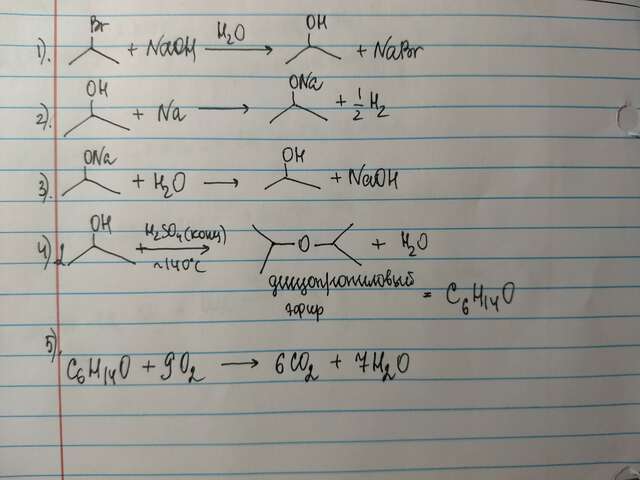 1). Br + NaOH H₂O → OH + NaBr
2). OH + Na → ONa + 1/2 H₂
3). ONa + H₂O → OH + NaOH
4) 2 OH + H₂SO₄ (конц) ~140°C → O + H₂O
диизопропиловый эфир = C₆H₁₄O
5). C₆H₁₄O + 9O₂ → 6CO₂ + 7H₂O